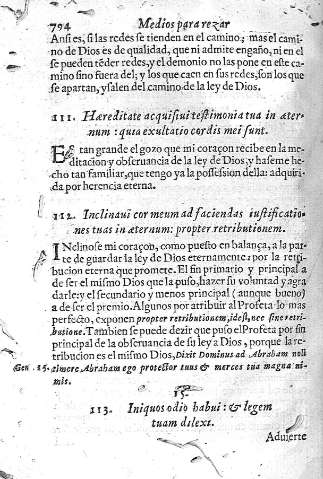 794 Medios para rezar
Ansi es, si las redes se tienden en el camino; mas el cami-
no de Dios es de qualidad, que ni admite engaño, ni en el
se pueden tēder redes, y el demonio las pone en este ca-
mino sino fuera del; y los que caen en sus redes, son los que
se apartan, y salen del camino de la ley de Dios.
111. Hæreditate acquisiui testimonia tua in æter-
num: quia exultatio cordis mei sunt.
Es tan grande el gozo que mi coraçon recibe en la me-
ditacion y obseruancia de la ley de Dios, y haseme he-
cho tan familiar, que tengo ya la possession della: adquiri-
da por herencia eterna.
112. Inclinaui cor meum ad faciendas iustificatio-
nes tuas in æternum: propter retributionem.
INclinose mi coraçon, como puesto en balança, a la par-
te de guardar la ley de Dios eternamente: por la retri-
bucion eterna que promete. El fin primario y principal a
de ser el mismo Dios que la puso, hazer su voluntad y agra
darle: y el secundario y menos principal (aunque bueno)
a de ser el premio. Algunos por atribuir al Profeta lo mas
perfecto, exponen propter retributionem, idest, nec sine retri-
butione. Tambien se puede dezir que puso el Profeta por fin
principal de la obseruancia de su ley a Dios, porque la re-
tribucion es el mismo Dios, Dixit Dominus ad Abraham noli
Gen. 15. timere Abraham ego protector tuus & merces tua magna ni-
mis.
15.
113. Iniquos odio habui: & legem
tuam dilexi.
Aduierte